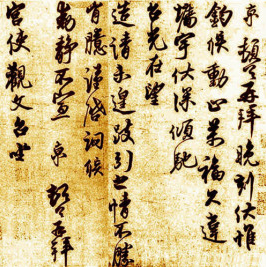 京頓首再拜晚刻伏惟
鈞候動止萬福久違
墻宇伏深傾馳
台光在望
造請未遑跂引之情不勝
胷臆謹啟詞候
動靜不宣 京 頓首再拜
宮使觀文台坐